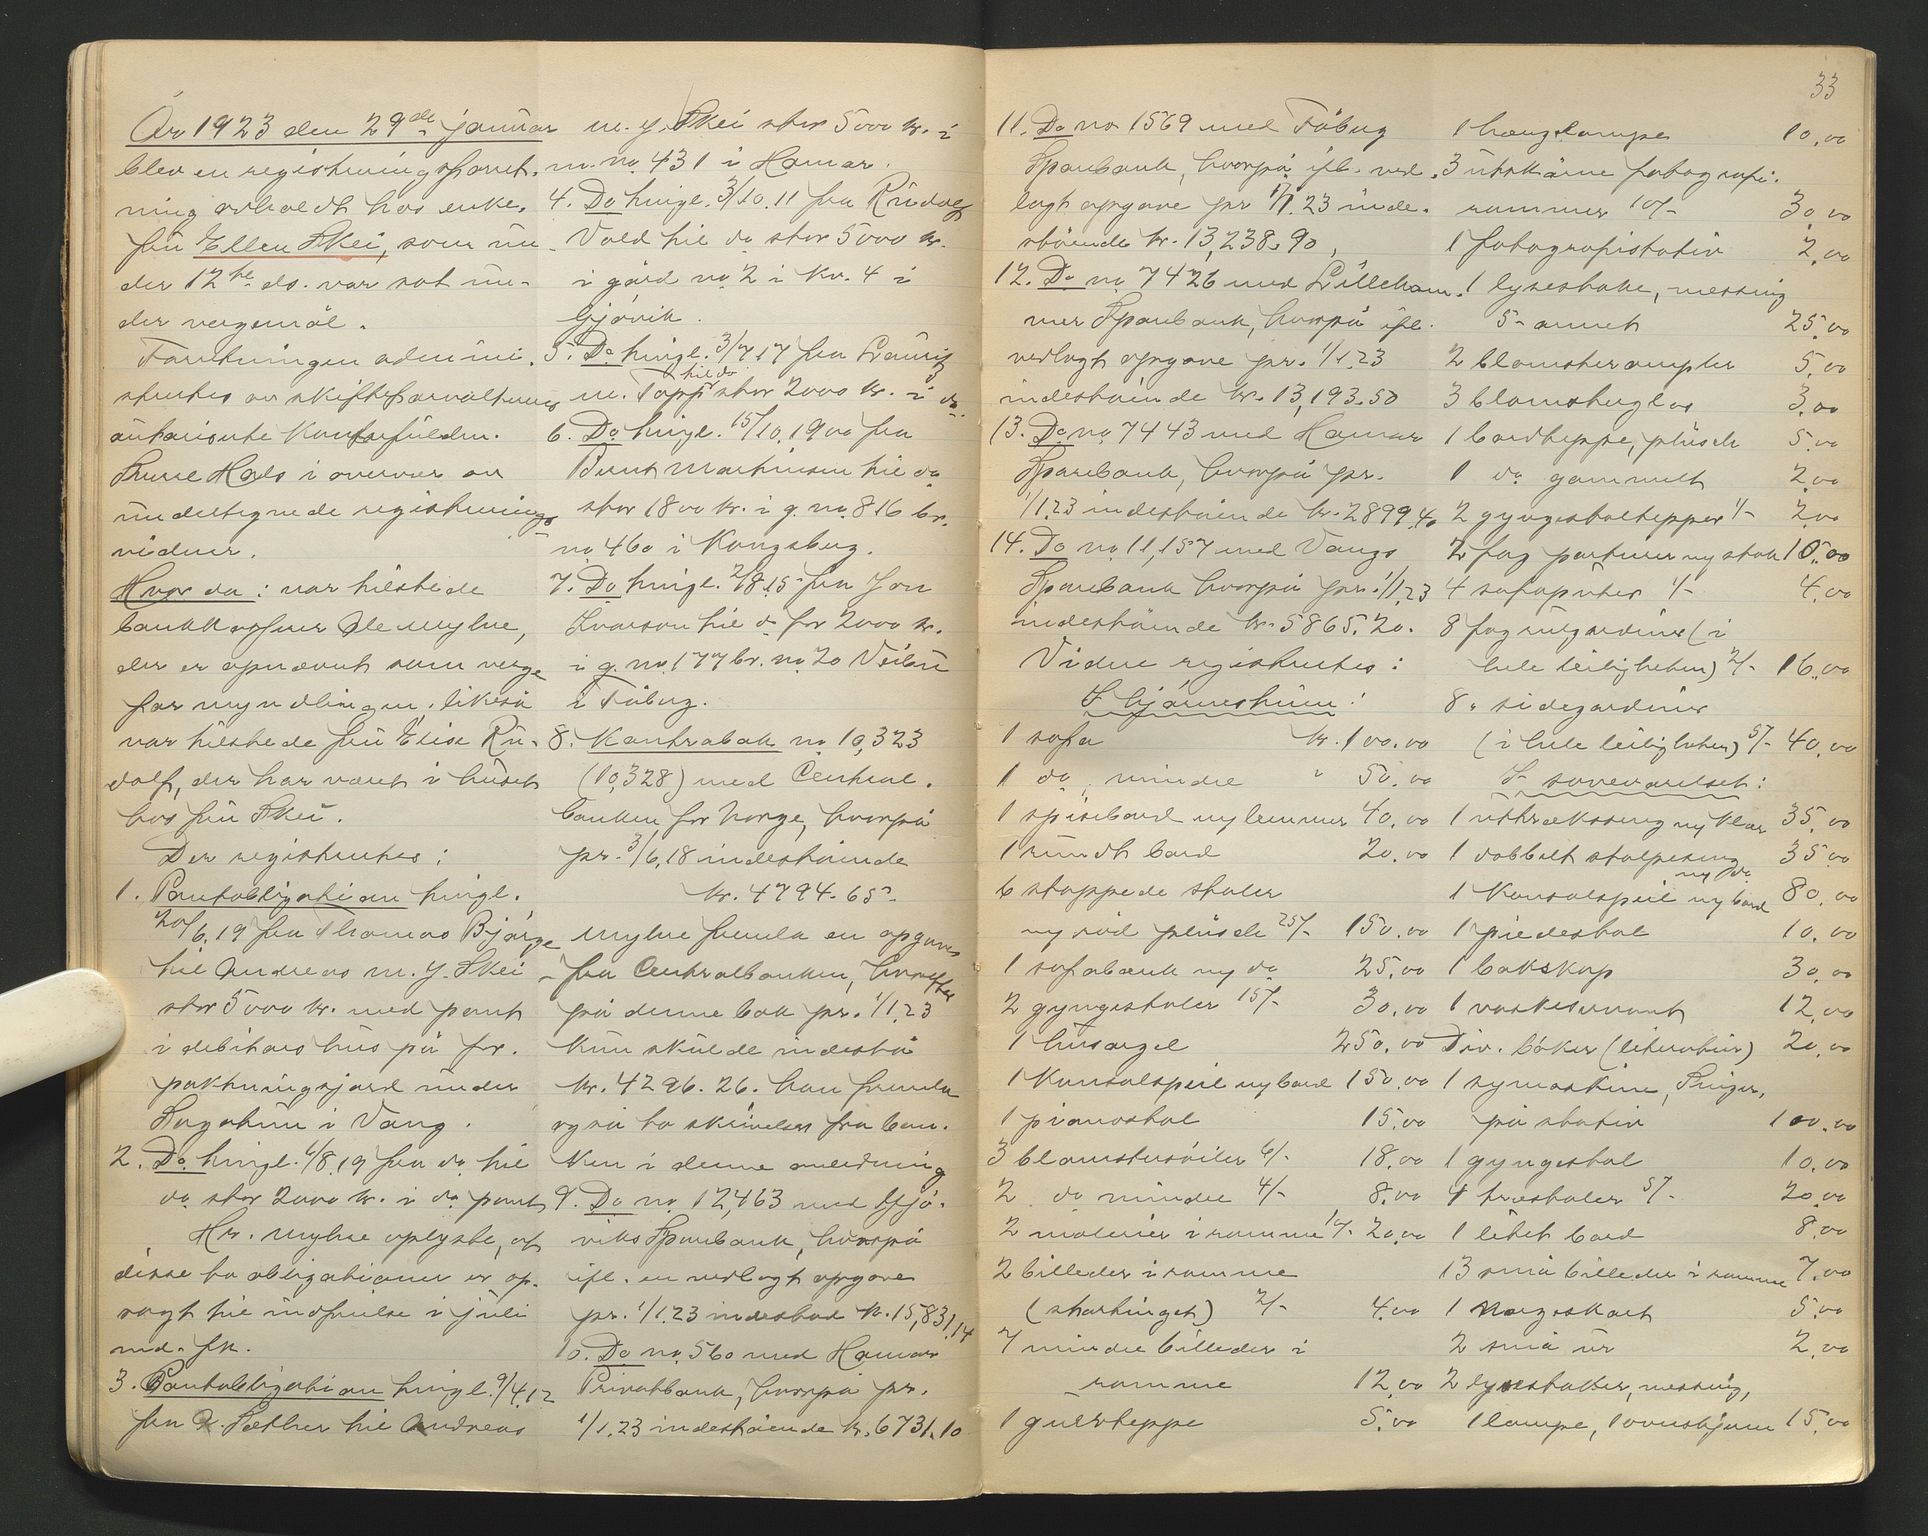 År 1923 den 29de januar
blev en registreringsforret-
ning avholdt hos enke-
fru Ellen Skei, som un-
der 12te ds. var sat un-
der vergemål.
Forretningen admini-
strertes av skifteforvalterens
autoriserte kontorfuldm.
Hals i overvær av
undertegnede registrerings-
vidner.
Hvor da: var tilstede
bankkasserer Ole Myhre,
der er opnævnt som verge
for myndlingen. Likeså
var tilstede fru Elise Ru-
dolf, der har været i huset
hos fru Skei.
Der registrertes:
1. Pantobligation tingl.
20/6.19 fra Thomas Bjørge
til Andreas M. J. Skei
stor 5000 kr. med pant
i debitors hus på for-
paktningsjord under
i Vang.
2. Do tingl. 6/8.19 fra do til
do stor 2000 kr. i do pant
Hr. Myhre oplyste, at
disse to obligationer er op-
sagt til indfrielse i juli
md. fk.
3. Pantobligation tingl. 9/4.12
fra Sæther til Andreas
M. J. Skei stor 5000 kr. i
m. no 431 i Hamar.
4. Do tingl. 3/10.11 fra Rudolf
Vold til do stor 5000 kr.
i gård no 2 i kv. 4 i
Gjøvik.
5. Do tingl. 3/7.17 fra Lauritz
M. Topp til do stor 2000 kr. i do
6. Do tingl. 15/10.1900 fra
Bernt Martinsen til do
stor 1800 kr. i g. no 816 br.
no 460 i Kongsberg.
7. Do tingl. 2/8.15 fra Jon
Ivarson til do for 2000 kr.
i g. no 177 br. no 20
i Fåberg.
8. Kontrabok no 10,323
(10,328) med Central-
banken for Norge, hvorpå
pr. 3/6.18 indestående
kr. 4794.65
Myhre fremla en opgave
fra Centralbanken, hvorefter
på denne bok pr. 1/1.23
kun skulde indestå
kr. 4296.26. Han fremla
også to skrivelser fra ban-
ken i denne anledning
9. Do no 12,463 med Gjø-
viks Sparebank, hvorpå
ifl. en vedlagt opgave
pr. 1/1.23 indestod kr. 15,831,14
10. Do no 560 med Hamar
Privatbank, hvorpå pr.
1/1.23 indestående kr. 6731.10
33
11. Do no 1569 med Fåberg
Sparebank, hvorpå ifl. ved-
lagt opgave pr 1/1.23 inde-
stående kr. 13,238.90,
12. Do no 7426 med Lilleham-
mer Sparebank, hvorpå ifl.
vedlagt opgave pr. 1/1.23
indestående kr. 13,193.50
13. Do no 7443 med Hamar
Sparebank, hvorpå pr.
1/1.23 indestående kr. 2899.40
14. Do no 11,157 med Vangs
Sparebank hvorpå pr. 1/1.23
indestående kr. 5865.20.
Videre registrertes:
I hjørnestuen:
1 sofa kr. 100.00
1 do, mindre " 50.00
1 spisebord m/lemmer 40.00
1 rundt bord 20.00
6 stoppede stoler
m/rød plüsch 25/- 150.00
1 sofabænk m/do 25.00
2 gyngestoler 15/- 30.00
1 husorgel 250.00
1 konsolspeil m/bord 150.00
1 pianostol 15.00
3 blomstersøiler 6/- 18.00
2 do mindre 4/- 8.00
2 malerier i ramme 10/- 20.00
2 billeder i ramme
(stortinget) 2/- 4.00
7 mindre billeder i
ramme 12.00
1 gulvteppe 5.00
1 hængelampe 10.00
3 utskårne fotografi-
rammer 10/- 30.00
1 fotografistativ 2.00
1 lysestake, messing
5-armet 25.00
2 blomsterampler 5.00
3 blomsterglas 3.00
1 bordteppe, plüsch 5.00
1 do gammelt 2.00
2 gyngestoltepper 1/- 2.00
2 fag portierer m/stok 10.00
4 sofaputer 1/- 4.00
8 fag rulgardiner (i
hele leiligheten) 2/- 16.00
8 " sidegardiner
(i hele leiligheten) 5/- 40.00
I soveværelset:
1 uttræksseng m/klær 35.00
1 dobbelt stolpeseng m/do 35.00
1 konsolspeil m/bord 80.00
1 piedestal 10.00
1 bokskap 30.00
1 vaskeservant 12.00
Div. bøker (literatur) 20.00
1 symaskine, Singer,
på stativ 100.00
1 gyngestol 10.00
4 træstoler 5/- 20.00
1 litet bord 8.00
13 små billeder i ramme 7.00
1 Norgeskart 5.00
2 små ur 2.00
2 lysestaker, messing,
1 lampe, 1 ovnskjerm 15.00